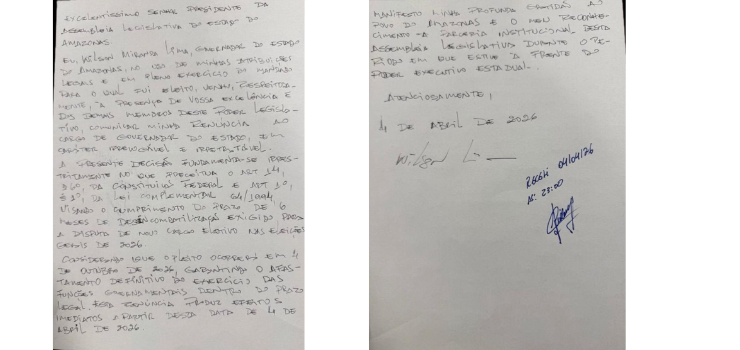 EXCELENTÍSSIMO SENHOR PRESIDENTE DA
ASSEMBLEIA LEGISLATIVA DO ESTADO DO
AMAZONAS
EU, WILSON MIRANDA LIMA, GOVERNADOR DO ESTADO
DO AMAZONAS, NO USO DE MINHAS ATRIBUIÇÕES
LEGAIS E EM PLENO EXERCÍCIO DO MANDATO
PARA O QUAL FUI ELEITO, VENHO, RESPEITOSA-
MENTE, À PRESENÇA DE VOSSA EXCELÊNCIA E
DOS DEMAIS MEMBROS DESTE PODER LEGISLA-
TIVO, COMUNICAR MINHA RENÚNCIA AO
CARGO DE GOVERNADOR DO ESTADO, EM
CARÁTER IRREVOGÁVEL E IRRETRATÁVEL.
A PRESENTE DECISÃO FUNDAMENTA-SE
NO QUE PRECEITUA O ART 14,
§6º, DA CONSTITUIÇÃO FEDERAL E ART 1º,
§ 1º, DA LEI COMPLEMENTAR 64/1990,
VISANDO O CUMPRIMENTO DO PRAZO DE 6
MESES DE DESINCOMPATIBILIZAÇÃO EXIGIDO PARA
A DISPUTA DE NOVO CARGO ELETIVO NAS ELEIÇÕES
GERAIS DE 2026
CONSIDERANDO QUE O PLEITO OCORRERÁ EM 4
DE OUTUBRO DE 2026, GARANTINDO O AFAS-
TAMENTO DEFINITIVO DO EXERCÍCIO DAS
FUNÇÕES GOVERNAMENTAIS DENTRO DO PRAZO
LEGAL. ESTA RENÚNCIA PRODUZ EFEITOS
IMEDIATOS A PARTIR DESTA DATA DE 4 DE
ABRIL DE 2026
MANIFESTO MINHA PROFUNDA GRATIDÃO AO
POVO DO AMAZONAS E O MEU RECONHE-
CIMENTO À PARCERIA INSTITUCIONAL DESTA
ASSEMBLEIA LEGISLATIVA DURANTE O PE-
RÍODO EM QUE ESTIVE À FRENTE DO
PODER EXECUTIVO ESTADUAL.
ATENCIOSAMENTE,
4 DE ABRIL DE 2026
Wilson Li
RECEBI 04/04/26
ÀS: 23:00